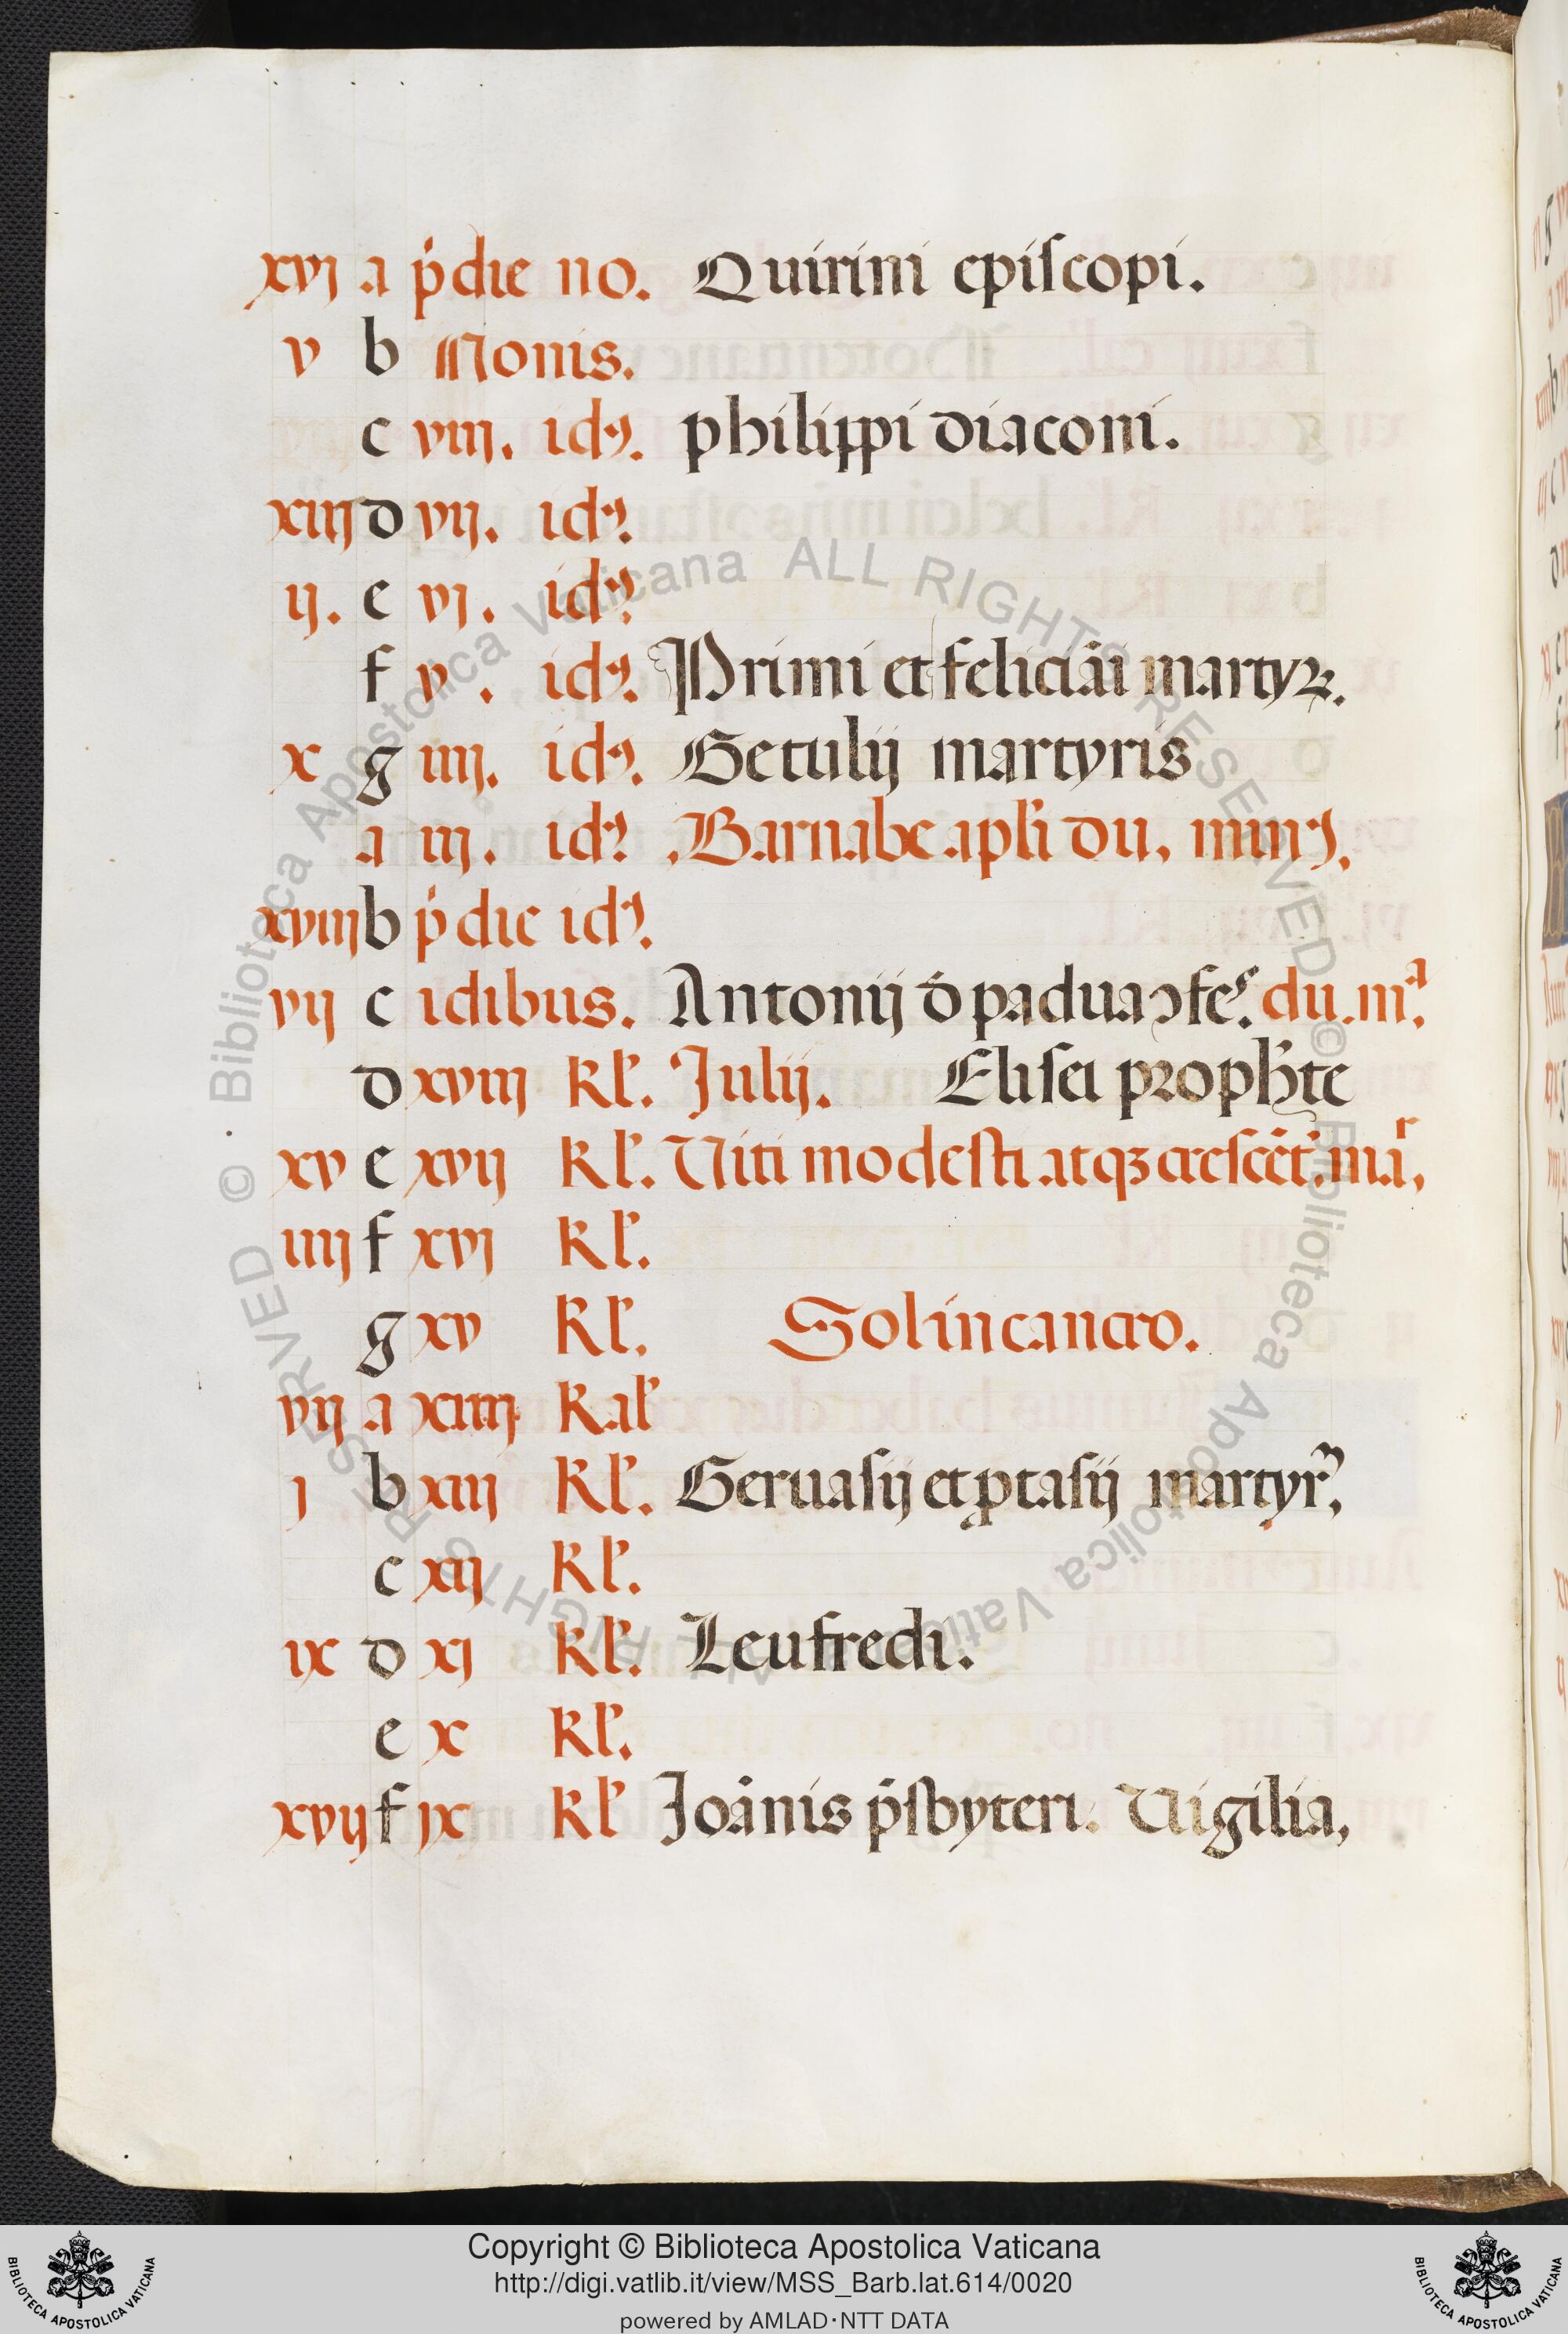 xvj a p'die no. Quirini episcopi.
v b Nonis.
c viij. idꝰ. philippi diaconi.
xiiij d vij. idꝰ.
ij. e vj. idꝰ.
f v. idꝰ. Primi et feliciāi martyꝝ.
x g iiij. idꝰ. Getulij martyris
a iij. idꝰ .Barnabe apli du, minꝰ,
xviij b p'die idꝰ.
vij c idibus. Antonij d̄ padua ↄfeˢ. du.mᵃ.
d xviij kl'. Julij. Elisei proph̄te
xv e xvij kl'. Viti modesti atqꝫ crescēt'.mr̄,
iiij f xvj kl'.
g xv kl'. Sol in cancro.
vij a xiiij kal'
j b xiij kl'. Geruasij et ꝓtasij martyr̄,
c xij kl'.
ix d xj kl'. Leufredi.
e x kl'.
xvij f jx kl' Joānis p̄sbyteri. Vigilia,
© Biblioteca Apostolica Vaticana ALL RIGHTS RESERVED © Biblioteca Apostolica Vaticana ALL RIGHTS RESERVED
Copyright © Biblioteca Apostolica Vaticana
http://digi.vatlib.it/view/MSS_Barb.lat.614/0020
powered by AMLAD·NTT DATA
BIBLIOTECA APOSTOLICA VATICANA
BIBLIOTECA APOSTOLICA VATICANA